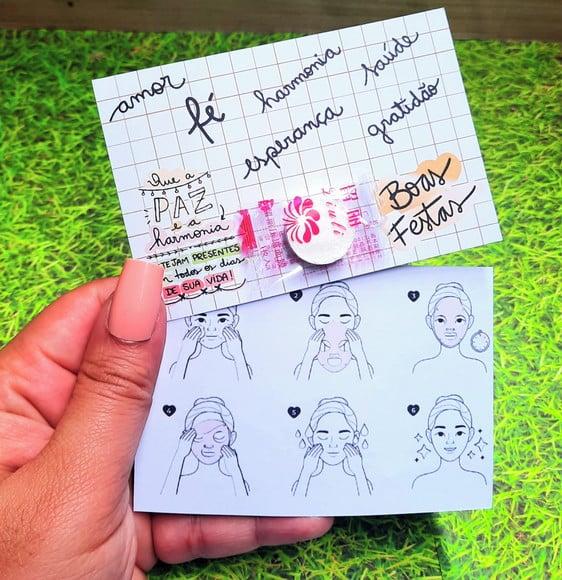 amor
fé
harmonia
saúde
esperança
gratidão
Que a
PAZ
e a
harmonia
TEJAM PRESENTES
m todos os dias
DE SUA VIDA!
Boas
Festas
2
3
4
5
6